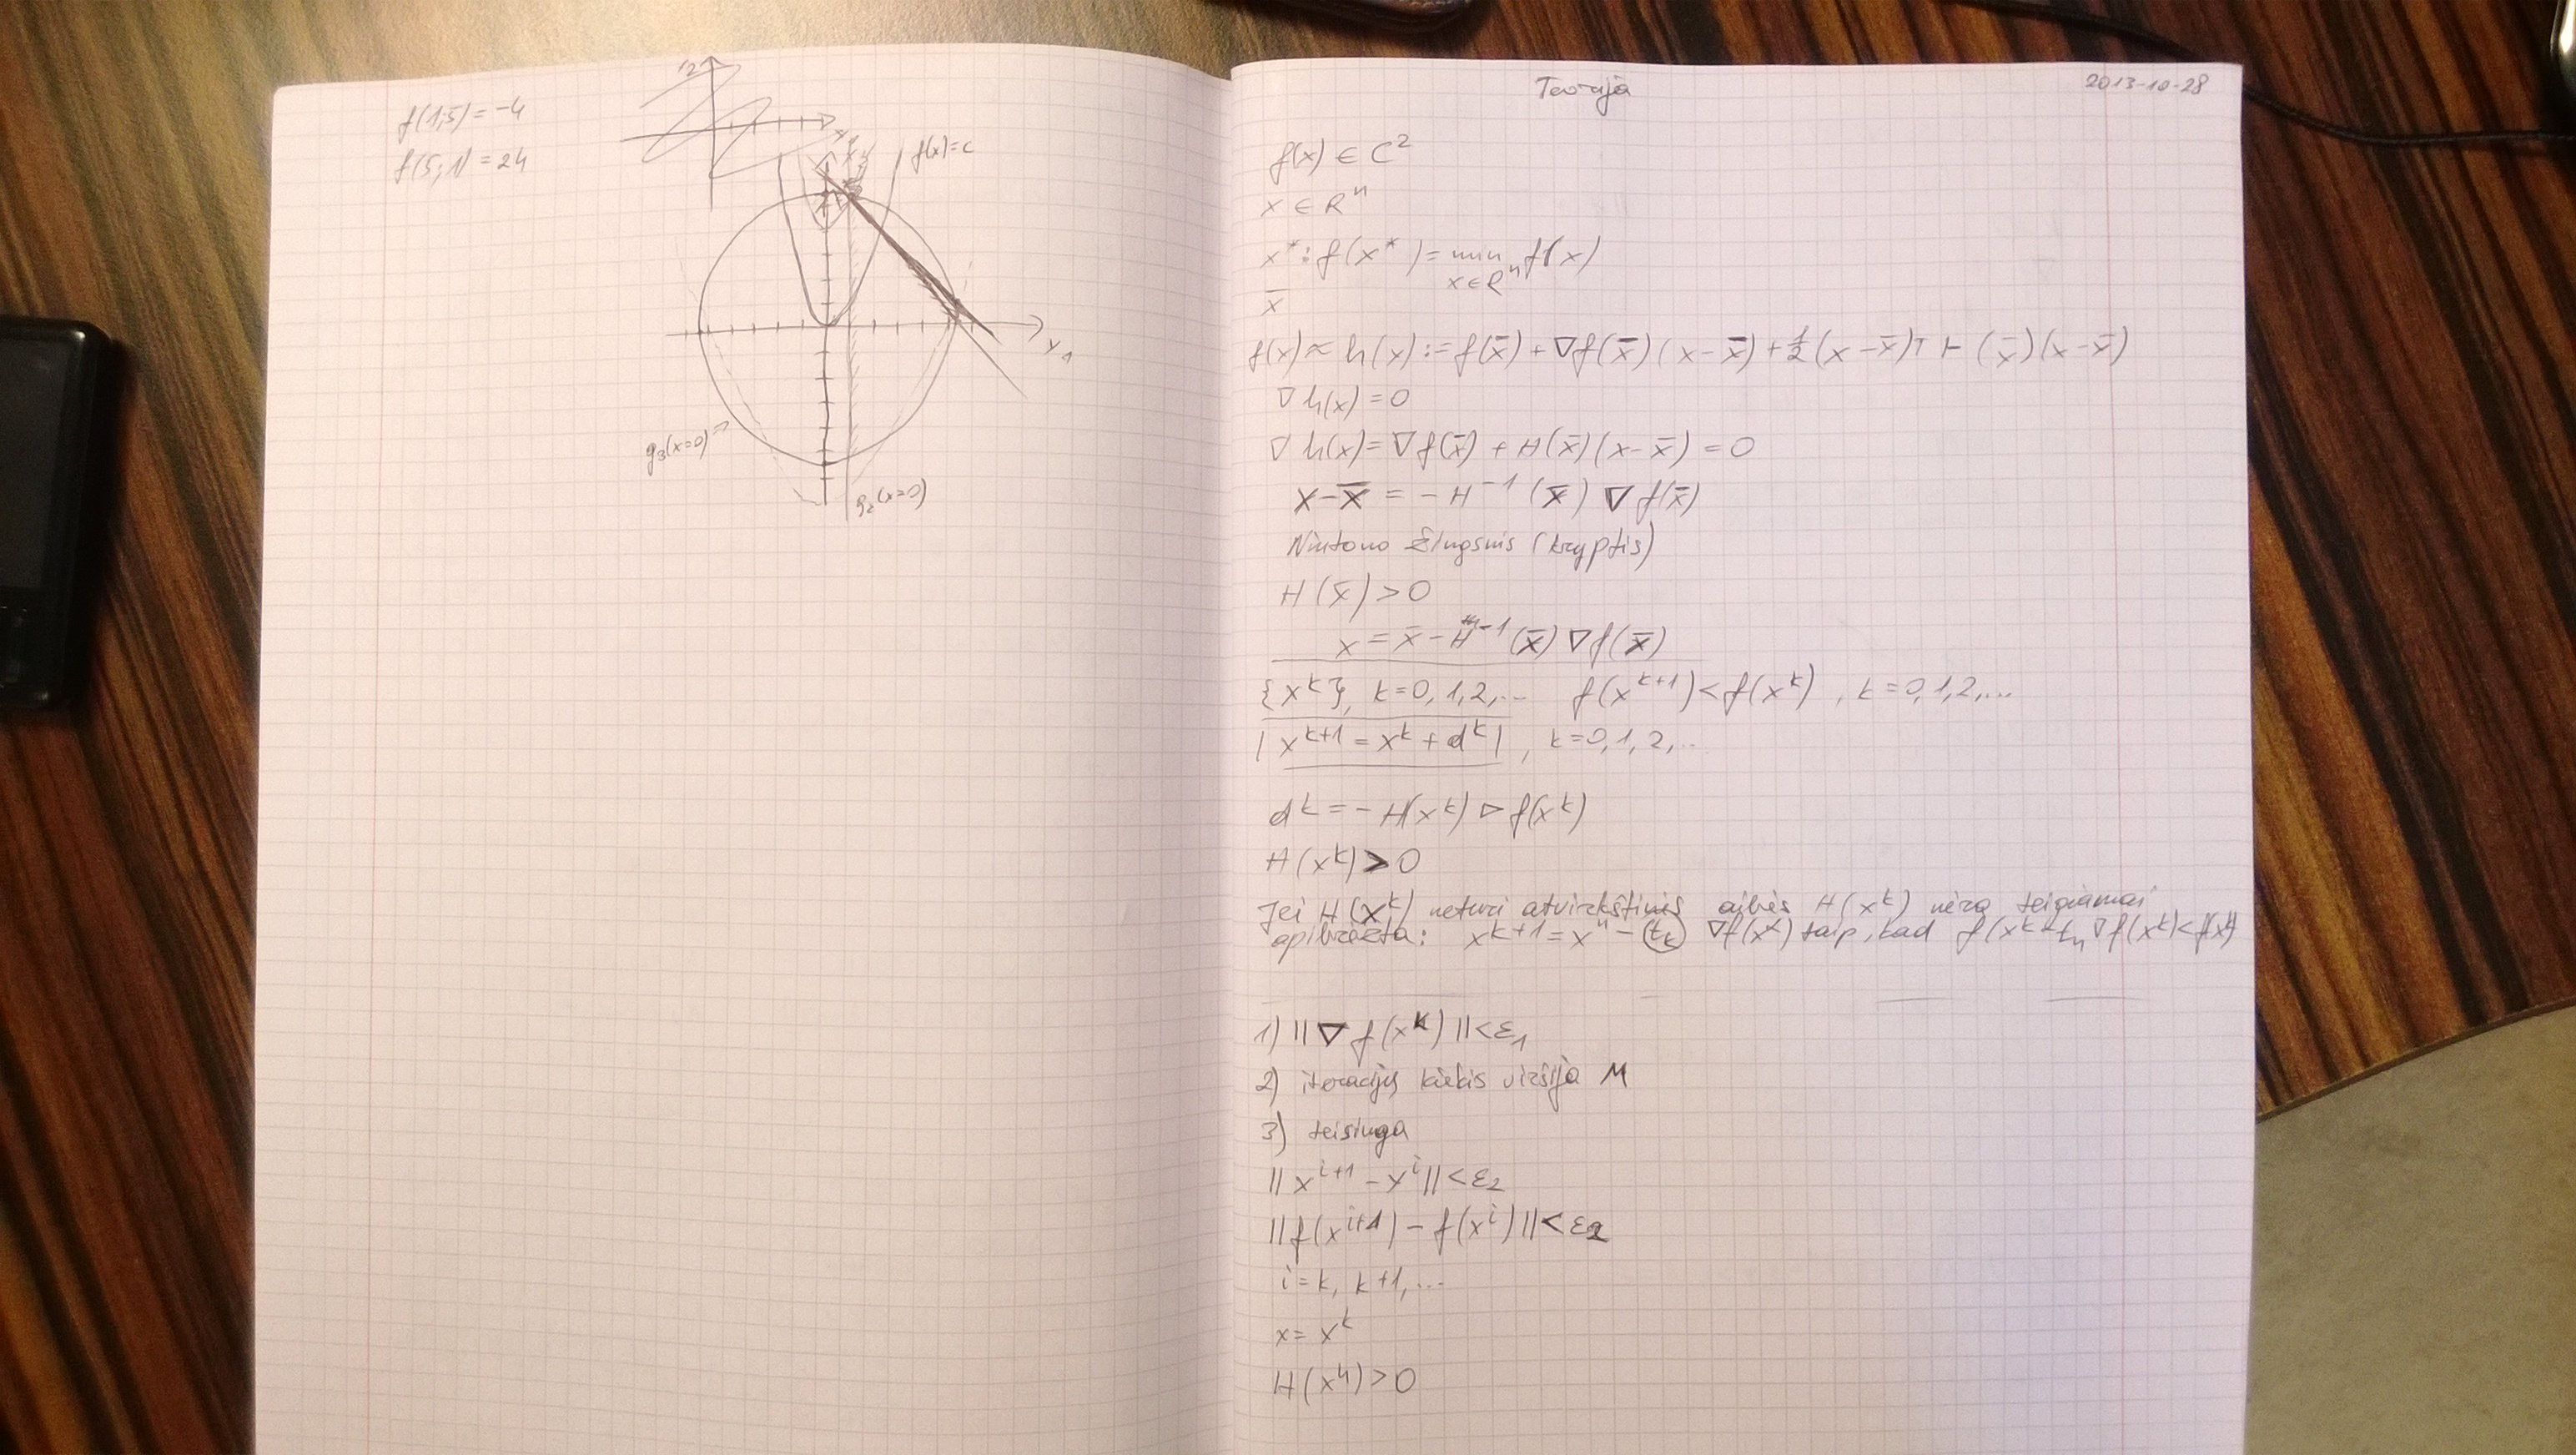 f(1;5) = -4
f(5;1) = 24
f(x)=c
x₁
g₃(x=0)
g₂(x=0)
Teorija
2013-10-28
f(x) ∈ C²
x ∈ Rⁿ
x* : f(x*) = min f(x)
x∈Rⁿ
x̄
f(x) ≈ h(x) := f(x̄) + ∇f(x̄)(x-x̄) + ½(x-x̄)ᵀ H(x̄)(x-x̄)
∇h(x) = 0
∇h(x) = ∇f(x̄) + H(x̄)(x-x̄) = 0
x-x̄ = -H⁻¹(x̄) ∇f(x̄)
Niutono žingsnis (kryptis)
H(x̄) > 0
x = x̄ - H⁻¹(x̄) ∇f(x̄)
{xᵏ}, k=0,1,2,... f(xᵏ⁺¹) < f(xᵏ), k=0,1,2,...
| xᵏ⁺¹ = xᵏ + dᵏ |, k=0,1,2,..
dᵏ = -H(xᵏ) ∇f(xᵏ)
H(xᵏ) > 0
Jei H(xᵏ) neturi atvirkštinės H(xᵏ) nėra teigiamai
apibrėžta: xᵏ⁺¹ = xⁿ - tₖ ∇f(xᵏ) taip, kad
1) ||∇f(xᵏ)|| < ε₁
2) iteracijų kiekis viršija M
3) teisinga
||xⁱ⁺¹ - xⁱ|| < ε₂
||f(xⁱ⁺¹) - f(xⁱ)|| < ε₂
i = k, k+1, ...
x = xᵏ
H(x⁴) > 0